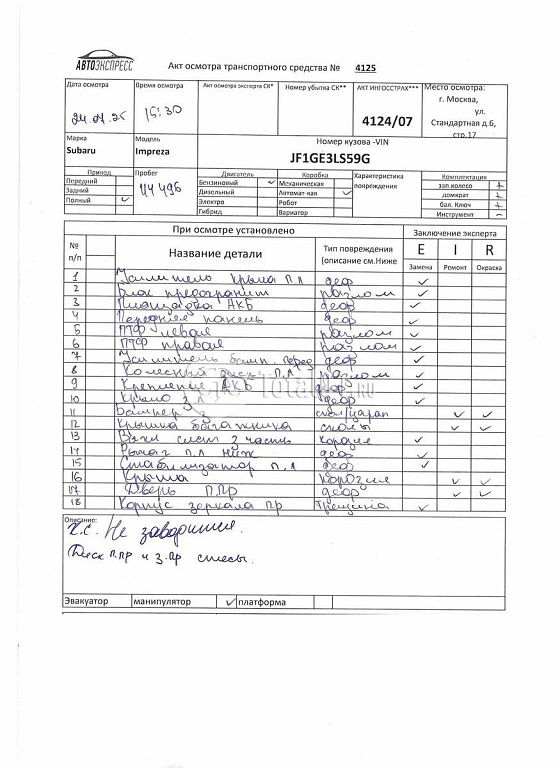 АВТОЭКСПРЕСС
Акт осмотра транспортного средства № 4125
Дата осмотра
Время осмотра
15:30
Акт осмотра эксперта СК*
Номер убытка СК**
АКТ ИНГОССТРАХ***
4124/07
Место осмотра:
г. Москва,
ул.
Стандартная д.6,
стр.17
Марка
Subaru
Модель
Impreza
Номер кузова -VIN
JF1GE3LS59G
Привод
Передний
Задний
Полный ✓
Пробег
114 496
Двигатель
Бензиновый ✓
Дизельный
Электро
Гибрид
Коробка
Механическая
Автомат-кая ✓
Робот
Вариатор
Характеристика
повреждения
Комплектация
зап.колесо +
домкрат +
бал. Ключ +
Инструмент -
При осмотре установлено
Заключение эксперта
№ п/п
Название детали
Тип повреждения
(описание см.Ниже
E I R
Замена Ремонт Окраска
1 Усилитель крыла п.л деф ✓
2 Блок предохранит разлом ✓
3 Площадка АКБ деф ✓
4 Передняя панель деф ✓
5 ПТФ левая разлом ✓
6 ПТФ правая разлом ✓
7 Усилитель бамп. перед деф ✓
8 Колесный диск п.л разлом ✓
9 Крепление АКБ деф ✓
10 Крыло з л деф ✓
11 Бампер скол/царап ✓ ✓
12 Крышка багажника сколы ✓ ✓
13 2 часть ✓
14 Рычаг п.л ниж деф ✓
15 Стабилизатор п.л деф ✓
16 Крыша коррозия ✓ ✓
17 Дверь п.пр деф ✓ ✓
18 Корпус зеркала пр трещина ✓
Описание:
Х.С. Не заводится.
Диск п.пр и з.пр стесы.
Эвакуатор
манипулятор
✓ платформа